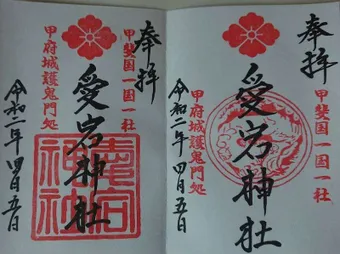 奉拝
甲斐国一国一社
愛宕神社
甲府城護鬼門処
令和二年四月五日
奉拝
甲斐国一国一社
愛宕神社
甲府城護鬼門処
令和二年四月五日
愛宕神社